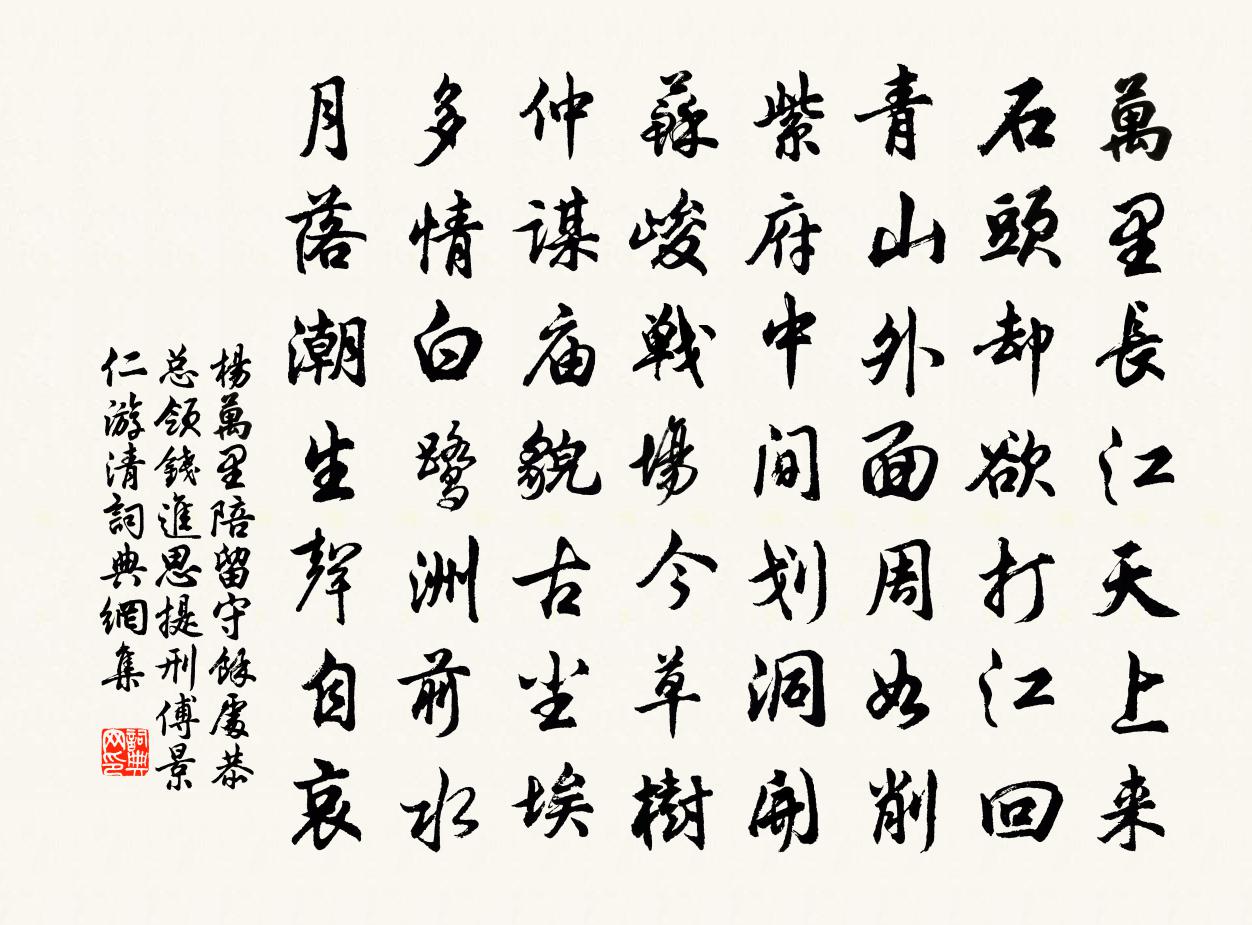 萬里長江天上来
石頭却欲打江回
青山外面周如削
紫府中间划洞開
蘇峻戦場今草樹
仲謀庙貌古尘埃
多情白鹭洲前水
月落潮生聲自哀
楊萬里陪留守餘處恭
总领錢進思提刑傅景
仁游清詞典網集
詞典网印